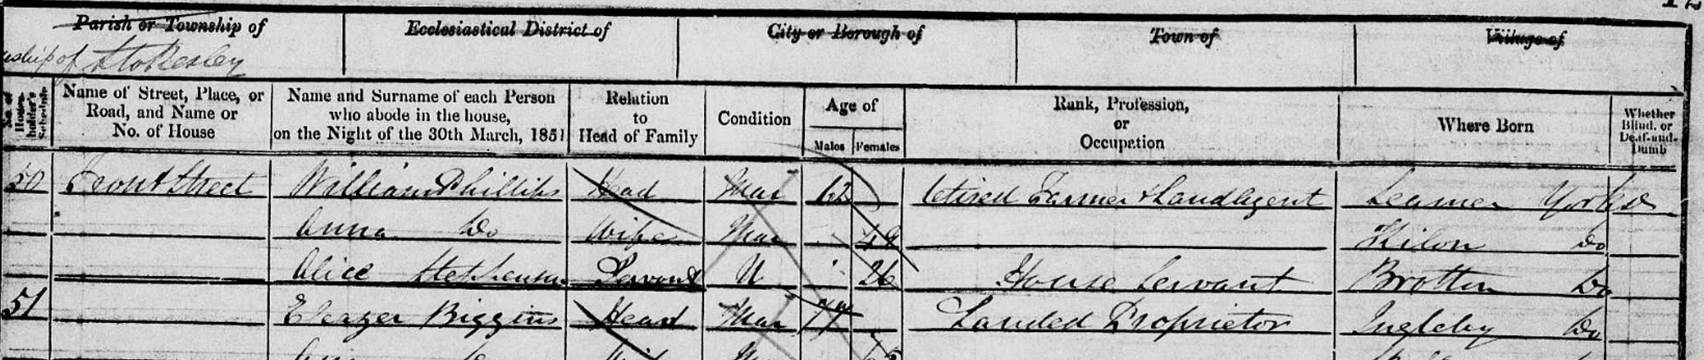 Parish or Township of Ecclesiastical District of City or Borough of Town of Village of
Township of Stokesley
No. of Householder's Schedule Name of Street, Place, or Road, and Name or No. of House Name and Surname of each Person who abode in the house, on the Night of the 30th March, 1851 Relation to Head of Family Condition Age of Males Females Rank, Profession, or Occupation Where Born Whether Blind, or Deaf-and-Dumb
50 Front Street William Phillips Head Mar 62 retired Farmer & Landagent Seamer Yorks
Anna Do Wife Mar Do
Alice Stephenson Servant U 26 House Servant Brotton Do
51 Eleazer Biggins Head Mar 77 Landed Proprietor Ingleby Do